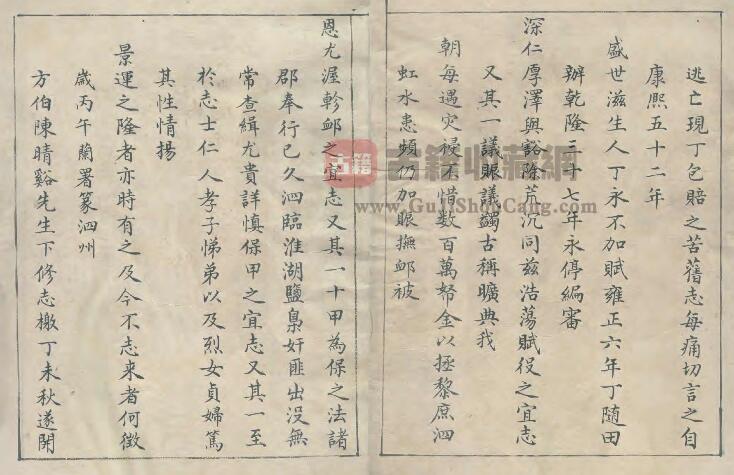 逃亡現丁包賠之苦舊志每痛切言之自
康熙五十二年
盛世滋生人丁永不加賦雍正六年丁隨田
辦乾隆三十七年永停編審
深仁厚澤與豁除荒沉同兹浩蕩賦役之宜志
又其一議賑議蠲古稱曠典我
朝每遇灾祲不惜數百萬帑金以拯黎庶泗
虹水患頻仍加賑撫卹被
恩尤渥軫卹之宜志又其一十甲為保之法諸
郡奉行已久泗臨淮湖鹽梟奸匪出没無
常查緝尤貴詳慎保甲之宜志又其一至
於志士仁人孝子悌弟以及烈女貞婦篤
其性情揚
景運之隆者亦時有之及今不志来者何徵
歲丙午蘭署篆泗州
方伯陳晴谿先生下修志檄丁未秋遂開
古籍收藏網
www.GujiShouCang.com